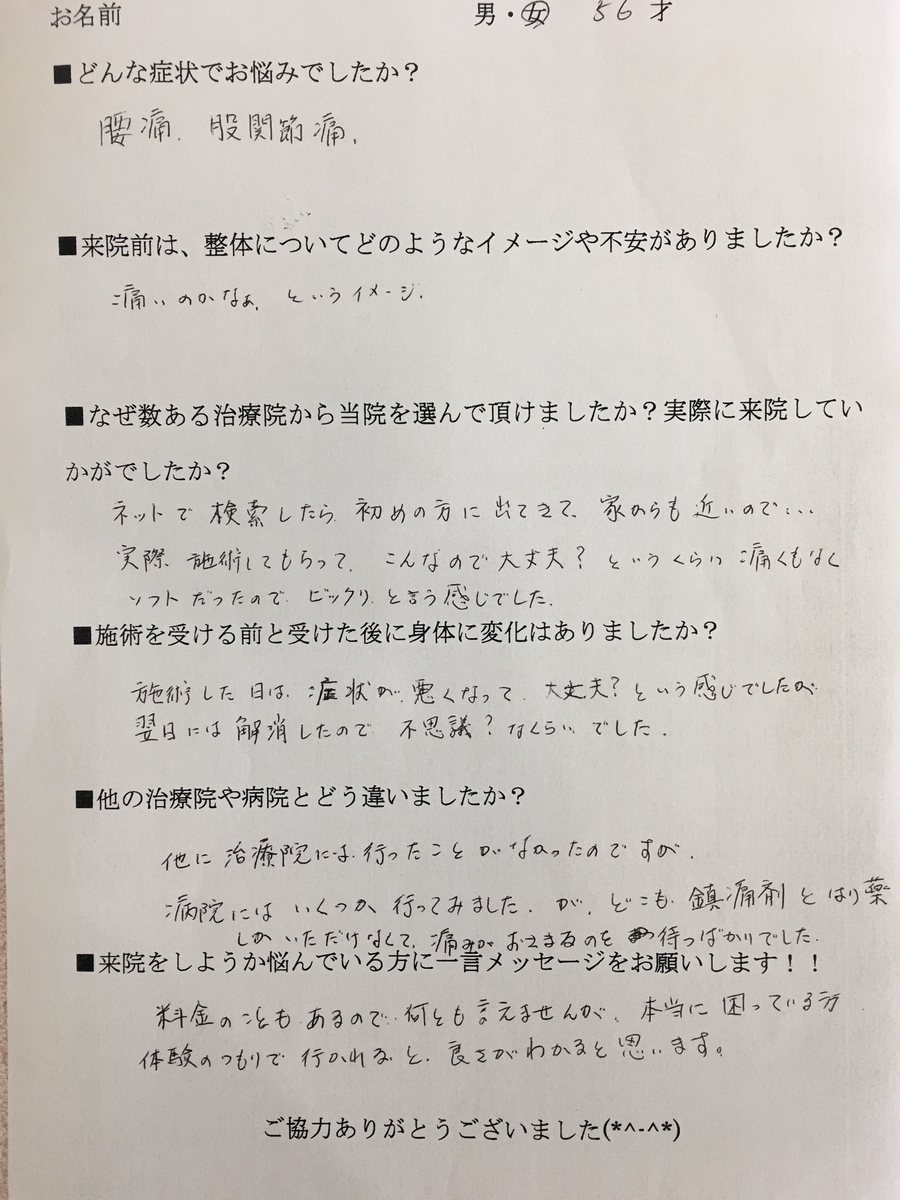 お名前 男・女 56才
■どんな症状でお悩みでしたか？
腰痛．股関節痛．
■来院前は、整体についてどのようなイメージや不安がありましたか？
痛いのかなぁ、というイメージ．
■なぜ数ある治療院から当院を選んで頂けましたか？実際に来院してい
かがでしたか？
ネットで検索したら、初めの方に出てきて、家からも近いので...
実際、施術してもらって、こんなので大丈夫？というくらい痛くもなく
ソフトだったので、ビックリ、と言う感じでした．
■施術を受ける前と受けた後に身体に変化はありましたか？
施術した日は、症状が、悪くなって、大丈夫？という感じでしたが
翌日には解消したので、不思議？なくらいでした．
■他の治療院や病院とどう違いましたか？
他に治療院には、行ったことがなかったのですが．
病院にはいくつか行ってみました．が、どこも、鎮痛剤とはり薬
しかいただけなくて、痛みがおさまるのを待つばかりでした．
■来院をしようか悩んでいる方に一言メッセージをお願いします！！
料金のこともあるので、何とも言えませんが、本当に困っている方
体験のつもりで行かれると、良さがわかると思います。
ご協力ありがとうございました(*^-^*)